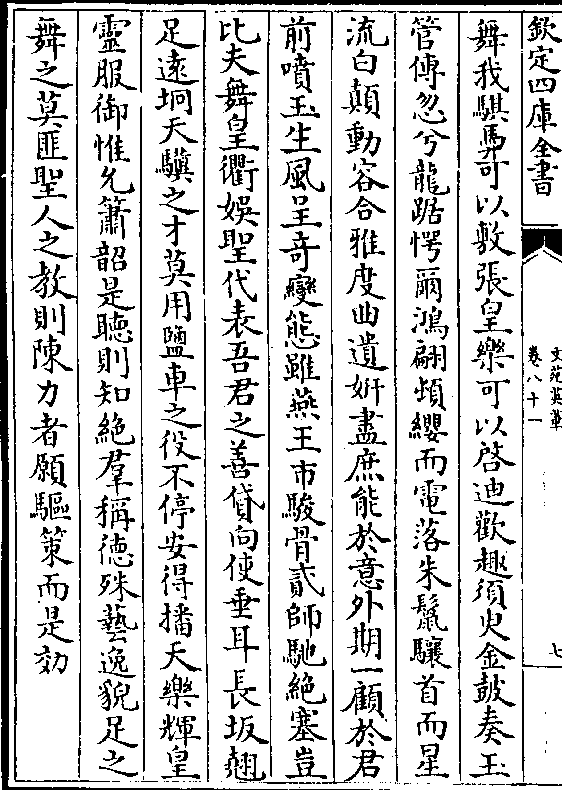 欽定四庫全書
文苑英華
卷八十一
七
舞我騏驥可以敷張皇樂可以啓迪歡趣須臾金鼓奏玉
管傳忽兮龍踞愕爾鴻翩頓纓而電落朱鬛驤首而星
流白顛動容合雅度曲遺妍盡庶能於意外期一顧於君
前噴玉生風呈奇變態雖燕王市駿骨貳師馳絶塞豈
比夫舞皇衢娛聖代表吾君之善貸向使垂耳長坂翹
足遠坰天驥之才莫用鹽車之役不停安得播天樂輝皇
靈服御惟允簫韶是聽則知絶羣稱德殊藝逸貌足之
舞之莫匪聖人之教則陳力者願驅策而是効